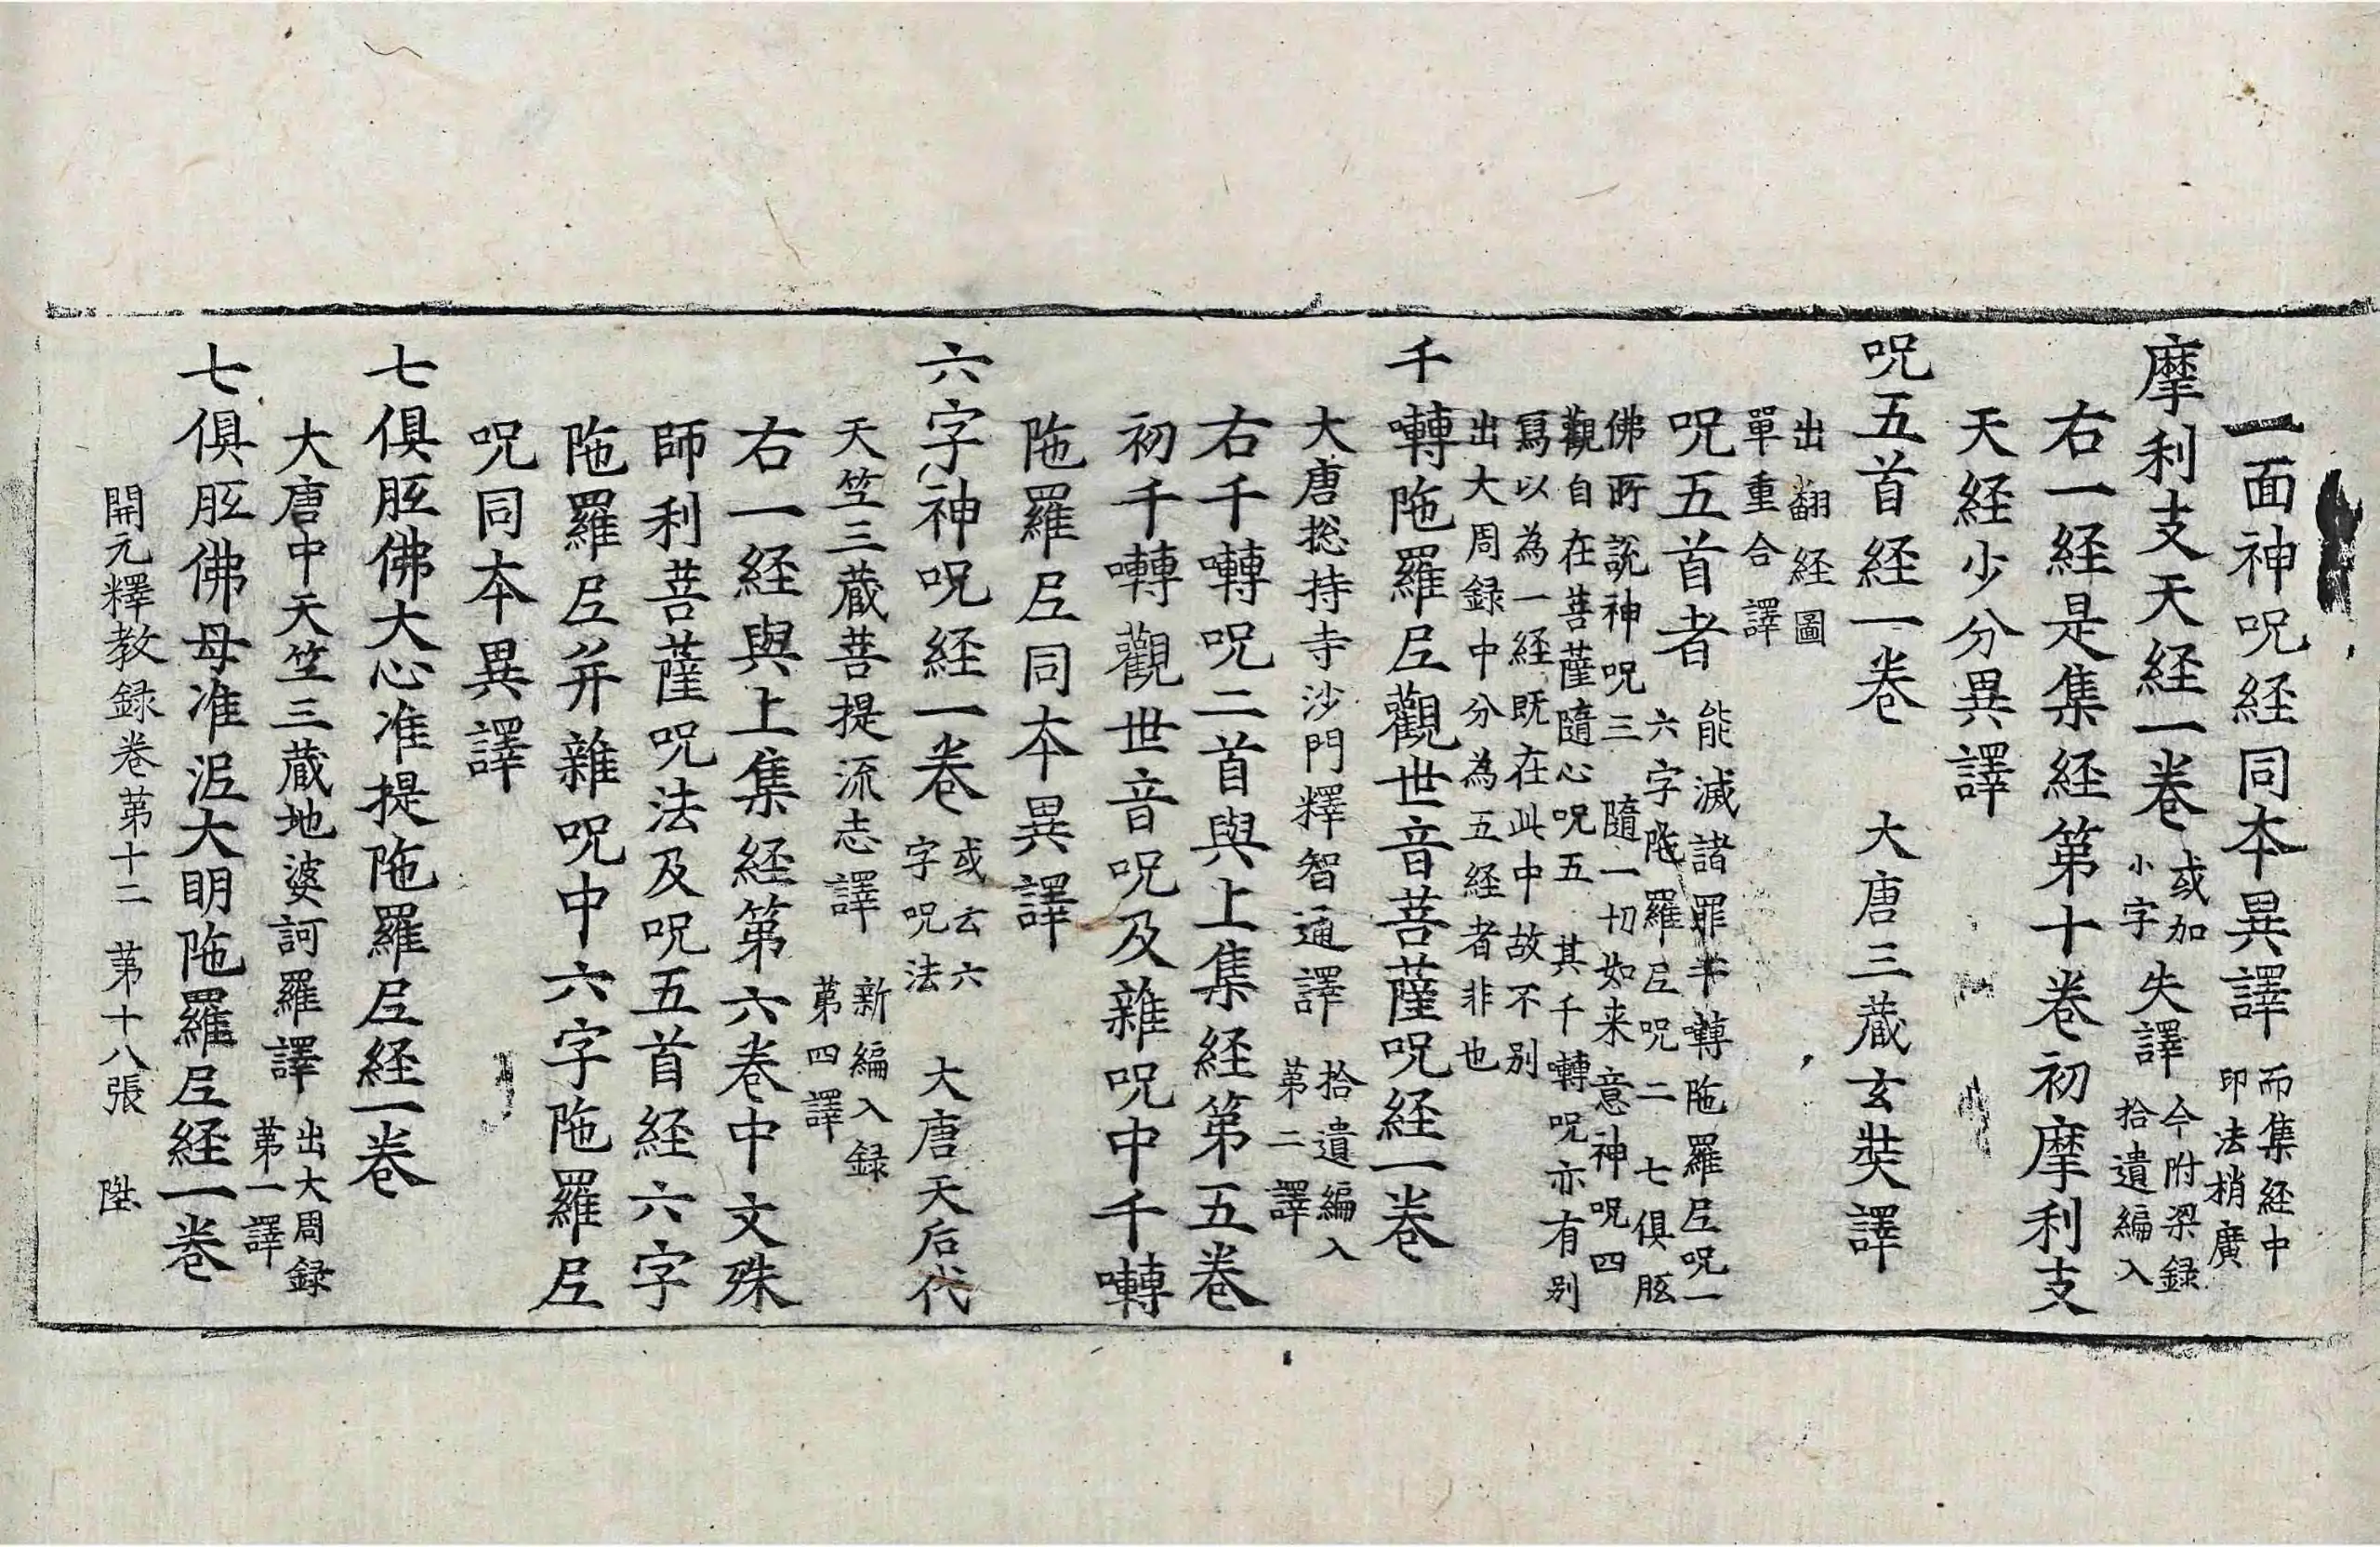 一面神呪経同本異譯 而集経中印法梢廣
摩利支天経一卷 或加小字 失譯 今附梁録拾遺編入
右一経是集経第十卷初摩利支
天経少分異譯
呪五首経一卷 大唐三藏玄奘譯
出翻経圖
單重合譯
呪五首者 能滅諸罪千囀陁羅尼呪一
六字陁羅尼呪二 七俱胝
佛所説神呪三 隨一切如来意神呪四
觀自在菩薩隨心呪五 其千囀呪亦有别
寫以為一経既在此中故不别
出大周録中分為五経者非也
千囀陁羅尼觀世音菩薩呪経一卷
大唐捴持寺沙門釋智通譯 拾遺編入第二譯
右千囀呪二首與上集経第五卷
初千囀觀世音呪及雜呪中千囀
陁羅尼同本異譯
六字神呪経一卷 或云六字呪法 大唐天后代
天竺三藏菩提流志譯 新編入録第四譯
右一経與上集経第六卷中文殊
師利菩薩呪法及呪五首経六字
陁羅尼并雜呪中六字陁羅尼
呪同本異譯
七俱胝佛大心准提陁羅尼経一卷
大唐中天竺三藏地婆訶羅譯 出大周録第一譯
七俱胝佛母准泥大明陁羅尼経一卷
開元釋教録卷第十二 第十八張 陞